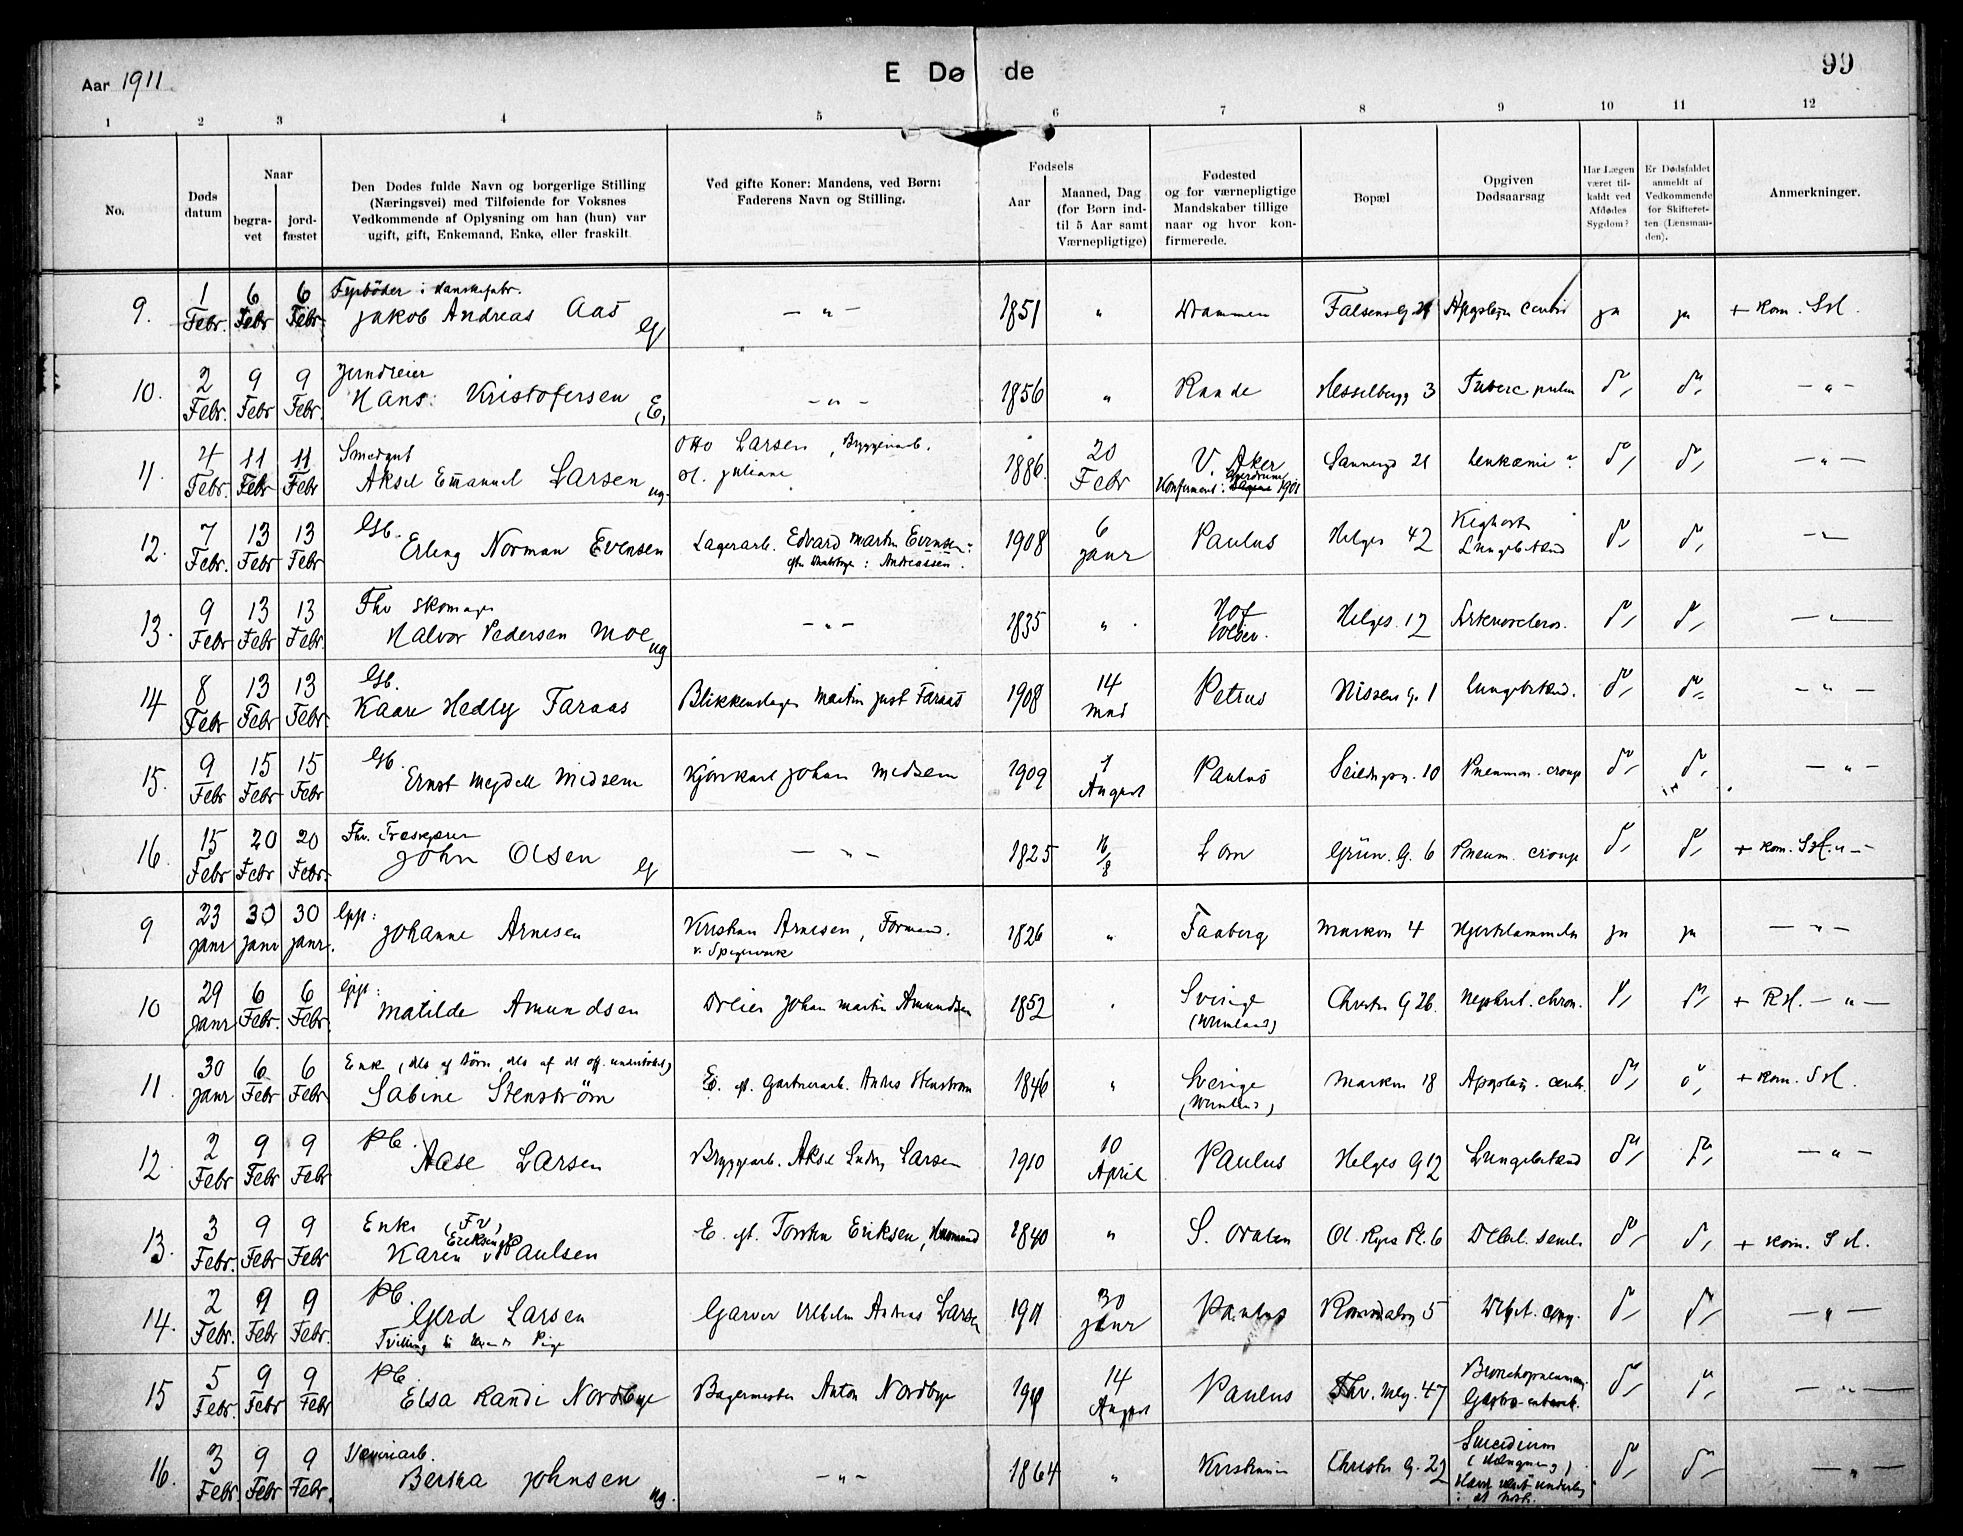 Aar 1911
E Døde
99
1 2 3 4 5 6 7 8 9 10 11 12
No.
Døds datum
Naar
begravet
jordfæstet
Den Dødes fulde Navn og borgerlige Stilling (Næringsvei) med Tilføiende for Voksnes Vedkommende af Oplysning om han (hun) var ugift, gift, Enkemand, Enke, eller fraskilt.
Ved gifte Koner: Mandens, ved Børn: Faderens Navn og Stilling.
Fødsels
Aar
Maaned, Dag (for Børn indtil 5 Aar samt Værnepligtige)
Fødested og for værnepligtige Mandskaber tillige naar og hvor konfirmerede.
Bopæl
Opgiven Dødsaarsag
Har Lægen været tilkaldt ved Afdødes Sygdom?
Er Dødsfaldet anmeldt af Vedkommende for Skifteretten (Lensmanden).
Anmerkninger.
9. 1 Febr. 6 Febr 6 Febr. Fyrbøder i Hanskefabr. Jakob Andreas Aas G — " — 1851 " Drammen Falsensg. Apoplexi ja ja + kom. SH.
10. 2 Febr. 9 Febr 9 Febr. Jerndreier Hans Kristofersen E, — " — 1856 " Raade Hesselbergg 3 Tuberc pulm do, do, — " —
11. 4 Febr. 11 Febr 11 Febr Smedgut Aksel Emanuel Larsen ug. Otto Larsen, Bryggeriarb. Juliane 1886. 20 Febr V. Aker Konfirmert: 1901 Sannergt 21 Leukæmi do, do, — " —
12. 7 Febr. 13 Febr 13 Febr Gb. Erling Norman Evensen Lagerarb. Edvard Martin Evensen: Andreassen. 1908 6 Janr Paulus Helges 42 Kighoste Lungebetænd do, do, — " —
13. 9 Febr 13 Febr 13 Febr. Fhv Skomager Halvor Pedersen Moe ug — " — 1835 " Hof Solør. Helges. 12 Arterioscleros. do, do, — " —
14 8 Febr 13 Febr 13 Febr. Gb. Kaare Hedly Faraas Blikkenslager Martin Just Faraas 1908 14 Petrus Nissens g. 1 Lungebetænd. do, do, — " —
15. 9 Febr 15 Febr 15 Febr Gb. Ernst Mejdell Midsem Kjørekarl Johan Midsem 1909 1 August Paulus Seildugsg. 10 Pneumon. croup do, do, — " —
16. 15 Febr 20 Febr 20 Febr. Fhv. Træskjærer John Olsen G — " — 1825 16/8 Lom Grün. G. 6 Pneum. croup do, do, + kom. SH. " —
9 23 Janr 30 Janr 30 Janr. Gift: Johanne Arnesen Kristian Arnesen, Formand. v. Spigerverk 1826 " Faaberg Markvn 4 Hjerteslammelse ja ja — " —
10 29 Janr 6 Febr. 6 Febr. Gift: Matilde Amundsen Dreier Johan Martin Amundsen 1852 Sverige (Wermland) Christies G 26. Nephrit. chron. do, do, + RH. — " —
11. 30 Janr 6 Febr 6 Febr Enke (dels af Børn, dels af det off. understøttet) Sabine Stenström E. ef. Gartnerarb. Anders Stenstrøm 1846 " Sverige (Wermland) Markvn 18 Apoplexi. cerebr. do, do, + kom. SH.
12. 2 Febr 9 Febr 9 Febr Pb. Aase Larsen Bryggearb. Aksel Ludvig Larsen 1910 10 April Paulus Helges G 12 Lungebetænd do, do, — " —
13. 3 Febr. 9 Febr 9 Febr Enke (FV) Karen Eriksen f. Paulsen E. ef. Torsten Eriksen, Husmand 1840 " S. Odalen Ol. Ryes Pl. 6 Debil. senil. do, do, + kom. SH.
14. 2 Febr. 9 Febr 9 Febr. Pb. Gerd Larsen Tvilling til levende Pige Garver Vilhelm Anders Larsen 1911 30 Janr Paulus 5 Debil. cong. do, do, — " —
15 5 Febr. 9 Febr 9 Febr Pb. Elsa Randi Nordbye Bagermester Anton Nordbye 1910 14 August Paulus Thv. Meyg. 47 Bronchopneumoni Gastro-enterit. do, do, — " —
16. 3 Febr. 9 Febr 9 Febr. Væveriarb. Bertha Johnsen ug. — " — 1864 " Kristiania Christies G. 22 Suicidium (Hængning) Havde været underlig i det sidste. do, do, — " —